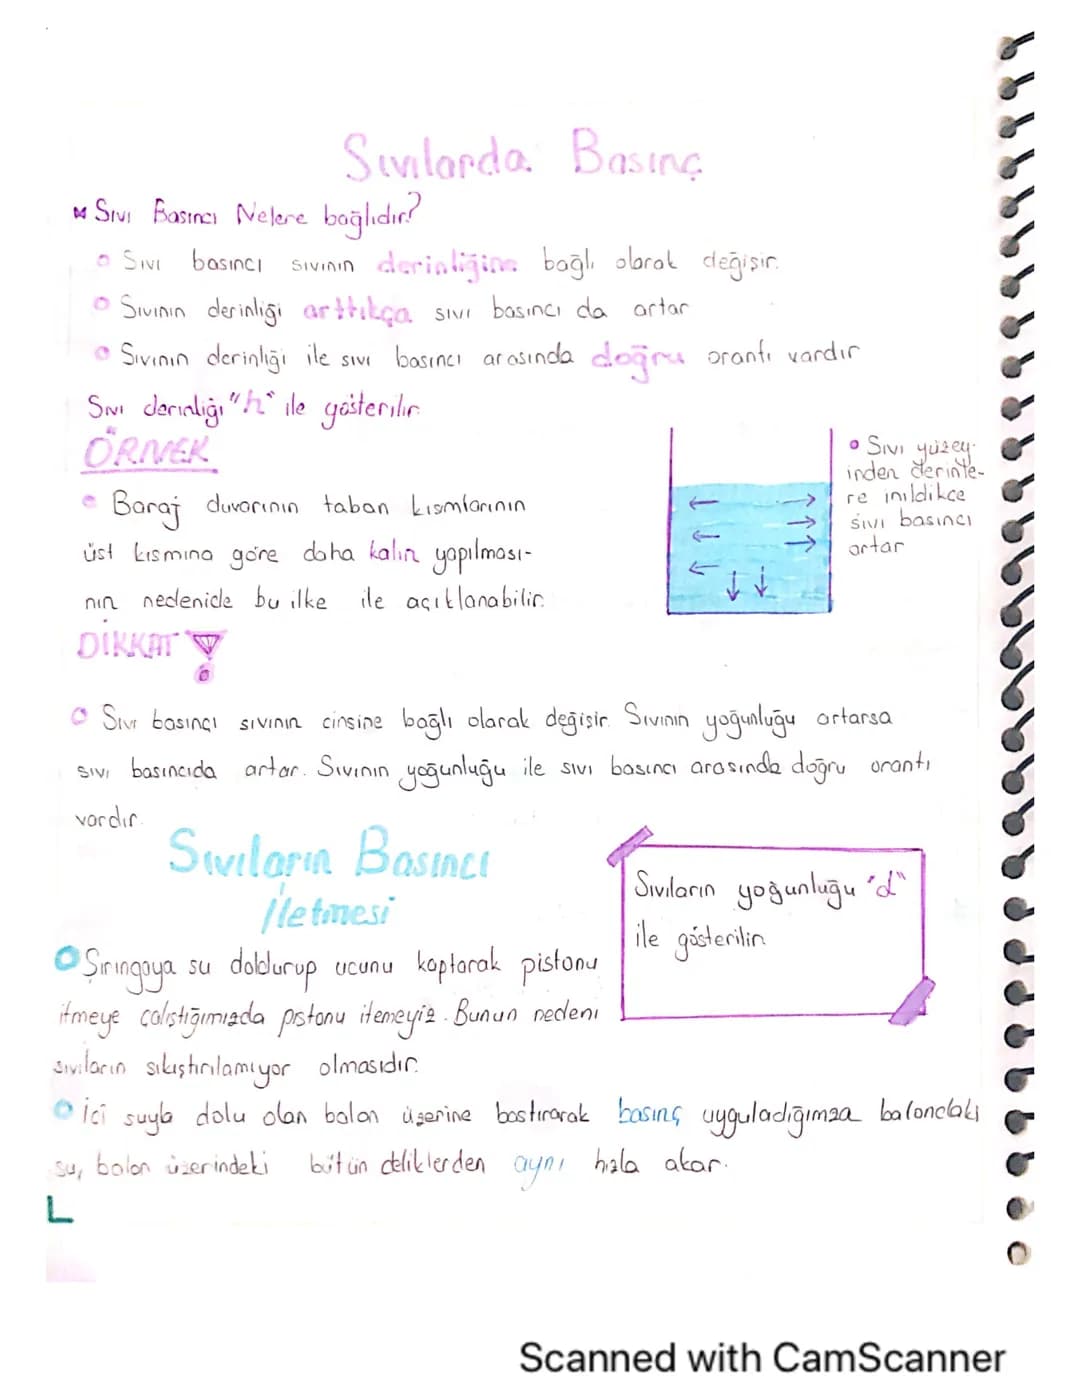 Sıvılarda Basınç
Sıvı Basıncı Nelere bağlıdır?
Sıvı basıncı sıvının derinliğine bağlı olarak değişir.
Sıvının derinliği arttıkça sıvı basıncı da artar
Sıvının derinliği ile sıvı basıncı arasında doğru orantı vardır
Sıvı derinliği "h" ile gösterilir.
ÖRNEK
Baraj duvarının taban kısmlarının
üst kısmına göre daha kalın yapılması-
nın nedenide bu ilke ile açıklanabilir.
Sıvı yüzey-
inden derinle-
re inildikce
sıvı basıncı
artar
DİKKAT
Sıvı basınçı sıvının cinsine bağlı olarak değişir. Sıvının yoğunluğu artarsa
sıvı basıncıda artar. Sıvının yoğunluğu ile sıvı basıncı arasında doğru orantı
vardır.
Sıvıların Basıncı
İletmesi
Sıvıların yoğunluğu "d"
ile gösterilir.
Şırıngaya su doldurup ucunu kaptarak pistonu
itmeye calıştığımızda pistonu itemeyiz. Bunun nedeni
sıvıların sıkıştırılamıyor olmasıdır.
İci suyla dolu olan balon üzerine bastırarak basınç uyguladığımıza balondaki
su, balon üzerindeki bütün deliklerden aynı hızla akar.
Scanned with CamScanner